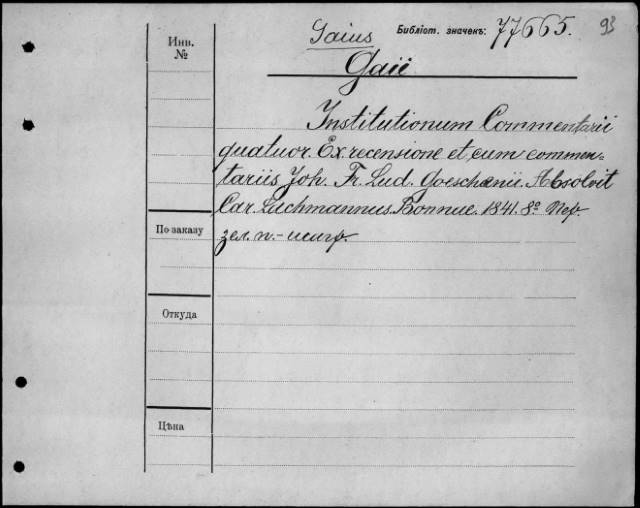 Gaius Библіот. значекъ: 77665. 93
Инв. №
Gaii
Institutionum Commentarii
quatuor. Ex recensione et cum commen-
tariis Joh. Fr. Lud. Goeschenii. Absolvit
Car. Lachmannus. Bonnae. 1841. 8º Пер.
По заказу
зел. п.-шагр.
Откуда
Цѣна